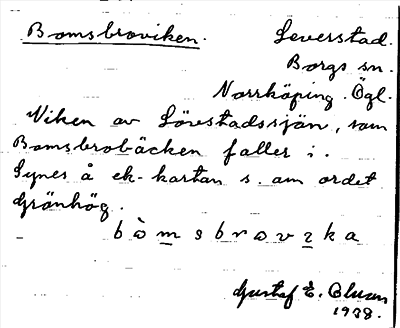 Bomsbroviken.
Leverstad.
Borgs sn.
Norrköping. Ögl.
Viken av Lövstadssjön, som
Bomsbrobäcken faller i.
Synes å ek-kartan s. om ordet
Grönhög.
bòmsbrovka
Gustaf E. Olsson
1938.